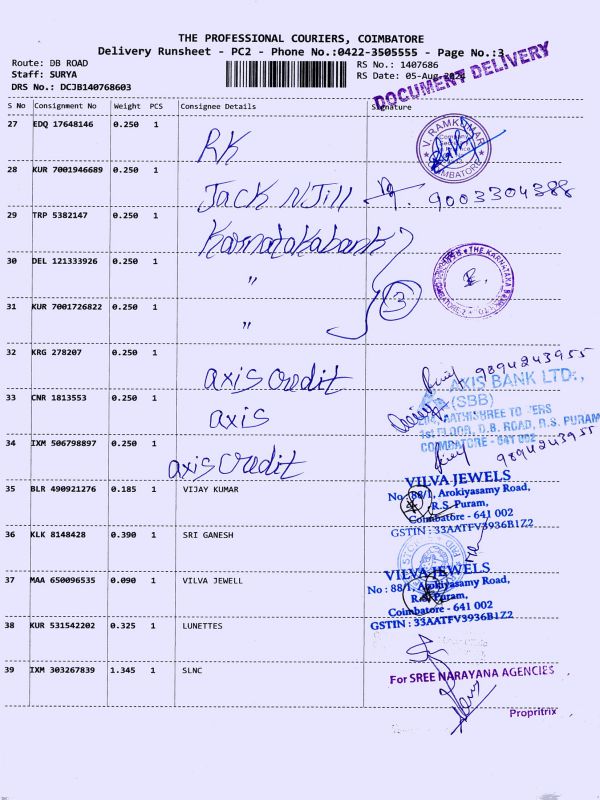 THE PROFESSIONAL COURIERS, COIMBATORE
Delivery Runsheet - PC2 - Phone No.:0422-3505555 - Page No.:3
Route: DB ROAD
RS No.: 1407686
Staff: SURYA
RS Date: 05-Aug
DRS No.: DCJB140768603
DOCUMENT DELIVERY
S No Consignment No Weight PCS Consignee Details Signature
27 EDQ 17648146 0.250 1 RK
V. RAMKUMAR
COIMBATORE
28 KUR 7001946689 0.250 1 Jack N Jill 9003304388
29 TRP 5382147 0.250 1 Karnataka bank
30 DEL 121333926 0.250 1 "
3
31 KUR 7001726822 0.250 1 "
32 KRG 278207 0.250 1 axis credit 9894243955
AXIS BANK LTD.,
(SBB)
33 CNR 1813553 0.250 1 axis
1st FLOOR, D.B. ROAD, R.S. PURAM
COIMBATORE - 641 002
34 IXM 506798897 0.250 1 axis credit 9894243955
VILVA JEWELS
No : 88/1, Arokiyasamy Road,
R.S. Puram,
Coimbatore - 641 002
GSTIN : 33AATFV3936B1Z2
35 BLR 490921276 0.185 1 VIJAY KUMAR
36 KLK 8148428 0.390 1 SRI GANESH
VILVA JEWELS
No : 88/1, Arokiyasamy Road,
R.S. Puram,
Coimbatore - 641 002
GSTIN : 33AATFV3936B1Z2
37 MAA 650096535 0.090 1 VILVA JEWELL
38 KUR 531542202 0.325 1 LUNETTES
39 IXM 303267839 1.345 1 SLNC
For SREE NARAYANA AGENCIES
Propritrix